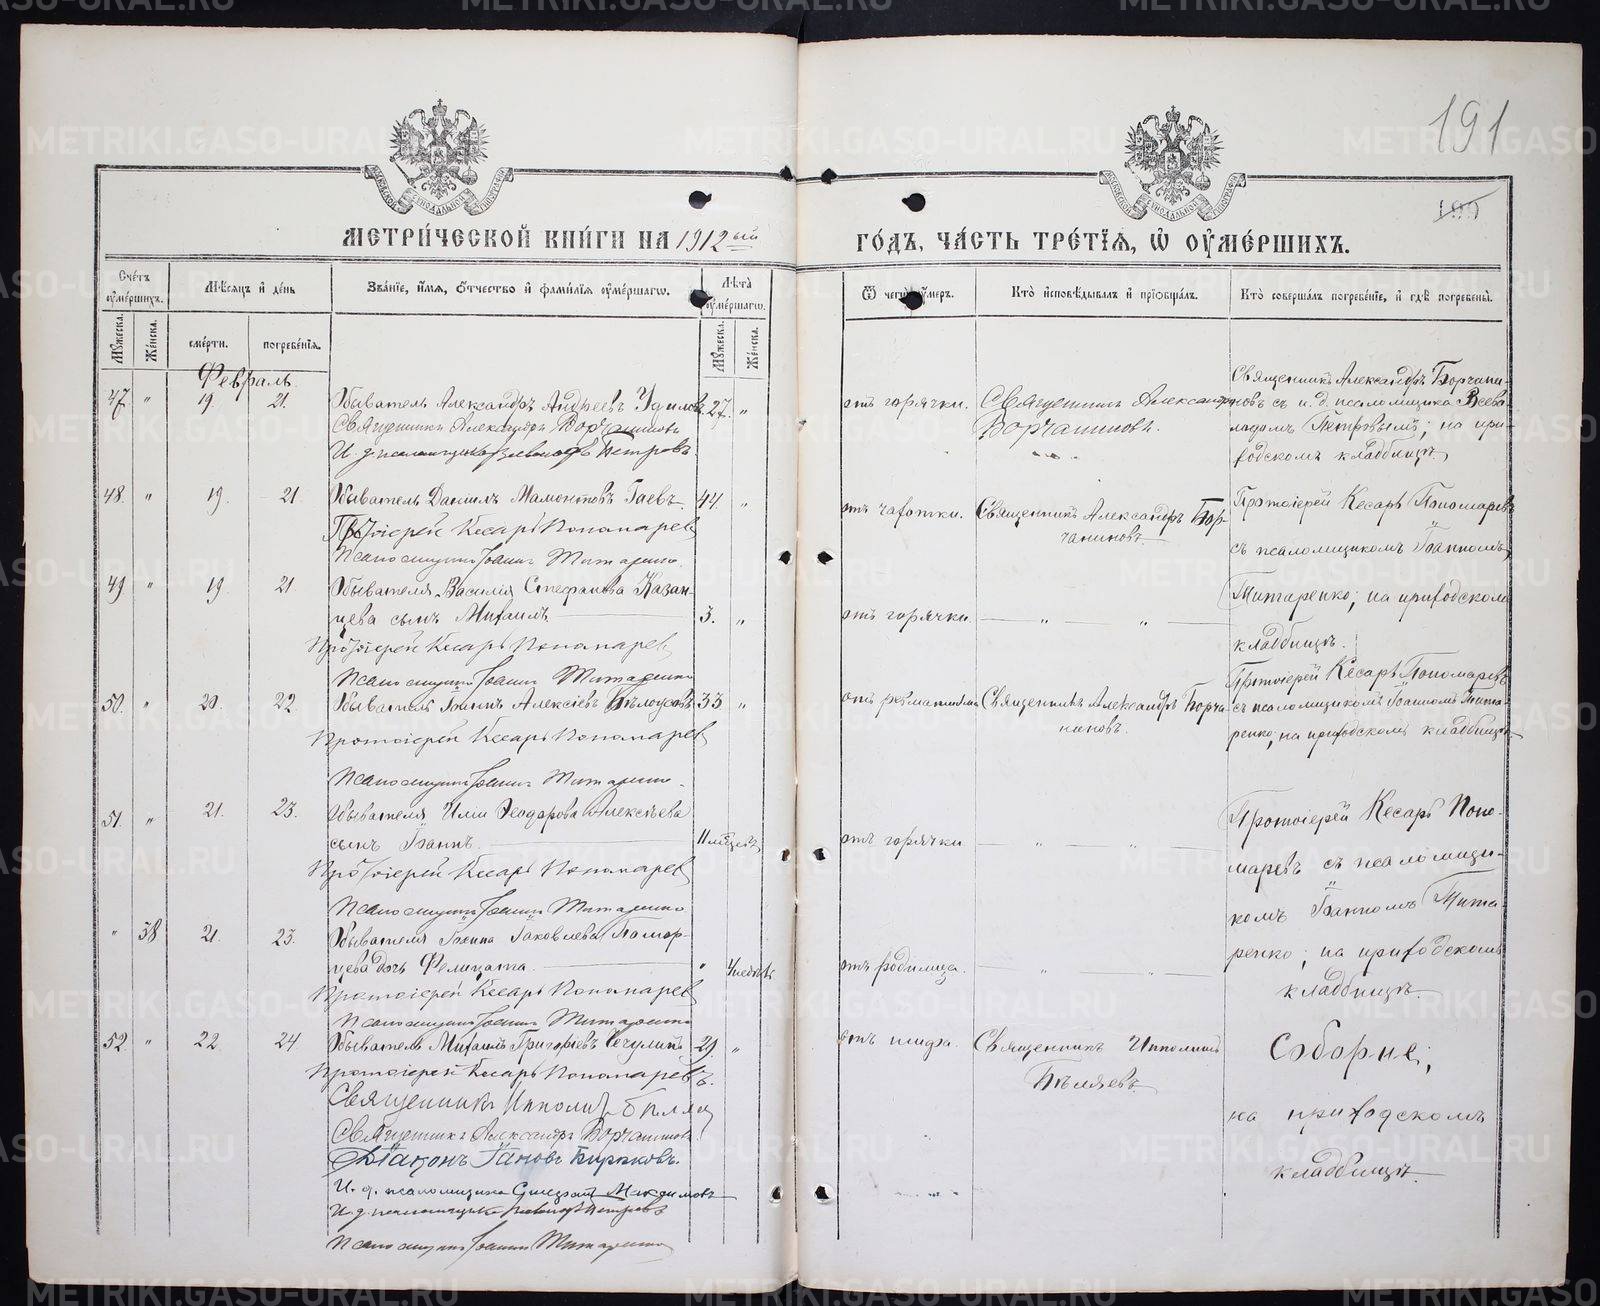 191
199
МЕТРИЧЕСКОЙ КНИГИ НА 1912ый
ГОДЪ, ЧАСТЬ ТРЕТІЯ, Ѡ ОУМЕРШИХЪ.
Счетъ оумершихъ.
Мѣсяцъ и день
Званіе, имя, отчество и фамилія оумершагѡ.
Лѣта оумершагѡ.
Ѿ чегѡ оумеръ.
Кто исповѣдывалъ и пріобщалъ.
Кто совершалъ погребеніе, и гдѣ погребены.
Мужеска.
Женска.
смерти.
погребенія.
Мужеска.
Женска.
Февраль.
47. " 19. 21. Обыватель Александръ Андреевъ Удиловъ 27. "
Священникъ Александръ Борчаниновъ
И. д. псаломщика Всеволодъ Петровъ
отъ горячки.
Священникъ Александръ
Борчаниновъ.
Священникъ Александръ Борчани-
новъ с и. д. псаломщика Всево-
лодомъ Петровымъ; на при-
ходскомъ кладбищѣ.
48. " 19. 21. Обыватель Даніилъ Мамонтовъ Гаевъ 44. "
Протоіерей Кесарь Пономаревъ
Псаломщикъ Іоаннъ Титаренко.
отъ чахотки.
Священникъ Александръ Бор-
чаниновъ.
Протоіерей Кесарь Пономаревъ
съ псаломщикомъ Іоанномъ
Титаренко; на приходскомъ
кладбищѣ.
49 " 19. 21. Обывателя Василія Стефанова Казан-
цева сынъ Михаилъ 3. "
Протоіерей Кесарь Пономаревъ
Псаломщикъ Іоаннъ Титаренко
отъ горячки. " "
50. " 20. 22. Обыватель Іоаннъ Алексіевъ Бѣлоусовъ 33 "
Протоіерей Кесарь Пономаревъ
Псаломщикъ Іоаннъ Титаренко.
отъ ревматизма
Священникъ Александръ Борча-
ниновъ.
Протоіерей Кесарь Пономаревъ
съ псаломщикомъ Іоанномъ Тита-
ренко; на приходскомъ кладбищѣ.
51. " 21. 23. Обывателя Иліи Ѳеодорова Алексѣева
сынъ Іоаннъ. 11 мѣсяцевъ
Протоіерей Кесарь Пономаревъ
Псаломщикъ Іоаннъ Титаренко
отъ горячки. " "
Протоіерей Кесарь Поно-
маревъ съ псаломщи-
комъ Іоанномъ Тита-
ренко; на приходскомъ
кладбищѣ.
" 38 21. 23. Обывателя Іоанна Іаковлева Помор-
цева дочь Фелицата. "
Протоіерей Кесарь Пономаревъ
Псаломщикъ Іоаннъ Титаренко
отъ родимца. " "
52. " 22. 24 Обыватель Михаилъ Григорьевъ Чечулинъ 29. "
Протоіерей Кесарь Пономаревъ.
Священникъ Ипполитъ Бѣляевъ
Священникъ Александръ Борчаниновъ.
Діаконъ Бирюковъ.
И. д. псаломщика Максимовъ
И. д. псаломщика Всеволодъ Петровъ
Псаломщикъ Іоаннъ Титаренко
отъ тифа.
Священникъ Ипполитъ
Бѣляевъ
Соборне;
на приходскомъ
кладбищѣ.
METRIKI.GASO-URAL.RU